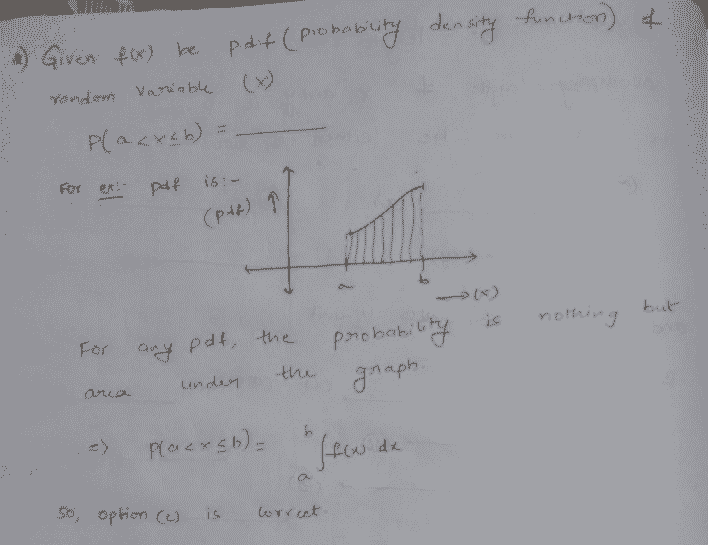 Given f(x) be pdf (probability density function) of
random variable (x)
P(a<x≤b) = ______
For ex:- pdf is:-
(pdf) ↑
a b
→(x)
For any pdf, the probability is nothing but
area under the graph.
=) P(a<x≤b) = a∫b f(x) dx
So, option (2) is correct.